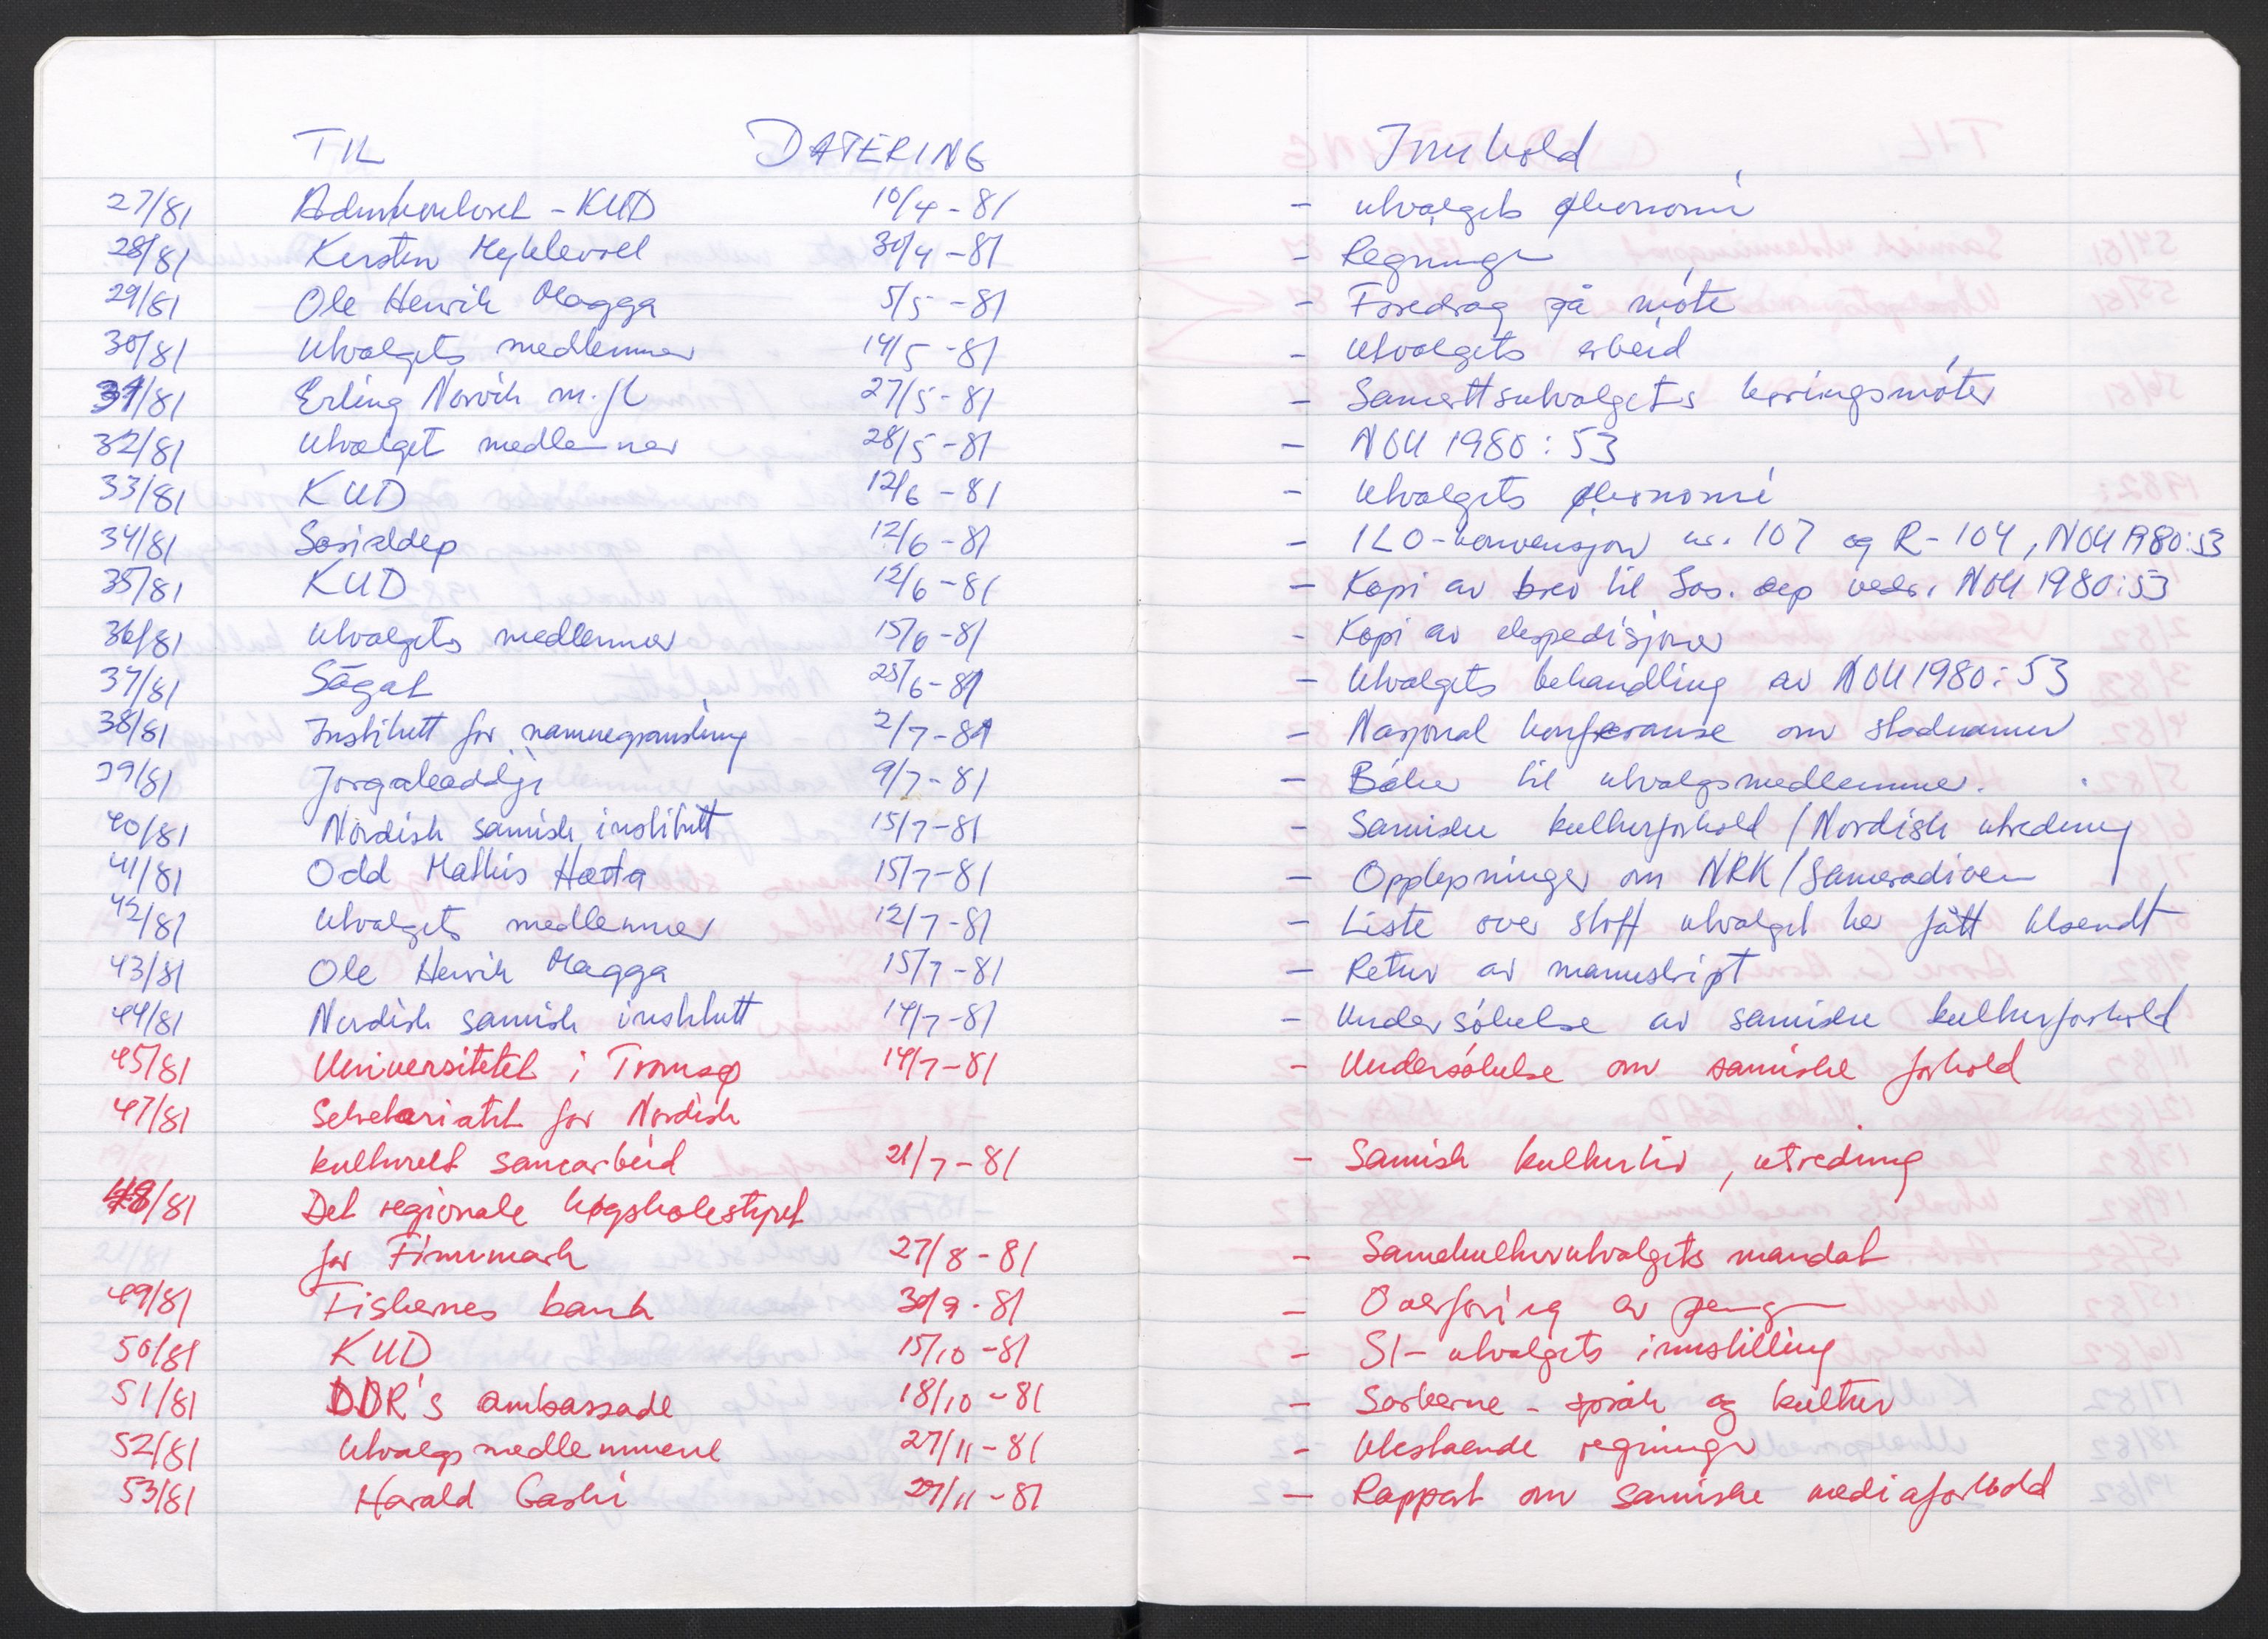 TIL DATERING Innhold
27/81 Admkontoret - KUD 10/4 - 81 - utvalgets økonomi
28/81 Kirsten Myklevoll 30/4 - 81 - Regninger
29/81 Ole Henrik Magga 5/5 - 81 - Foredrag på møte
30/81 Utvalgets medlemmer 14/5 - 81 - Utvalgets arbeid
31/81 Erling Norvik m. fl 27/5 - 81 - Samerettsutvalgets høringsmøter
32/81 Utvalget medlemmer 28/5 - 81 - NOU 1980: 53
33/81 KUD 12/6 - 81 - Utvalgets økonomi
34/81 Sosialdep 12/6 - 81 - ILO-konvensjon nr. 107 og R-104, NOU 1980:53
35/81 KUD 12/6 - 81 - Kopi av brev til Sos. dep vedr. NOU 1980:53
36/81 Utvalgets medlemmer 15/6 - 81 - Kopi av ekspedisjoner
37/81 Ságat 25/6 - 81 - Utvalgets behandling av NOU 1980: 53
38/81 Institutt for namnegransking 2/7 - 81 - Nasjonal konferanse om stadnamn
39/81 Jorgaleaddji 9/7 - 81 - Bøker til utvalgsmedlemmer.
40/81 Nordisk samisk institutt 15/7 - 81 - Samiske kulturforhold / Nordisk utredning
41/81 Odd Mathis Hætta 15/7 - 81 - Opplysninger om NRK / Sameradioen
42/81 Utvalgets medlemmer 12/7 - 81 - Liste over stoff utvalget har fått tilsendt
43/81 Ole Henrik Magga 15/7 - 81 - Retur av manuskript
44/81 Nordisk samisk institutt 14/7 - 81 - Undersøkelse av samiske kulturforhold
45/81 Universitetet i Tromsø 14/7 - 81 - Undersøkelse om samiske forhold
47/81 Sekretariatet for Nordisk
kulturelt samarbeid 21/7 - 81 - Samisk kulturliv, utredning
48/81 Det regionale høgskolestyret
for Finnmark 27/8 - 81 - Samekulturutvalgets mandat
49/81 Fiskernes bank 30/9 - 81 - Overføring av penger
50/81 KUD 15/10 - 81 - SI-utvalgets innstilling
51/81 DDR's ambassade 18/10 - 81 - Sorberne - språk og kultur
52/81 Utvalgsmedlemmene 27/11 - 81 - Utestående regninger
53/81 Harald Gaski 27/11 - 81 - Rapport om samiske mediaforhold